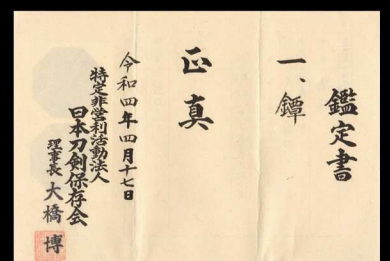 鑑定書
一、鐔
正真
令和四年四月十七日
特定非営利活動法人
日本刀剣保存会
理事長 大橋 博